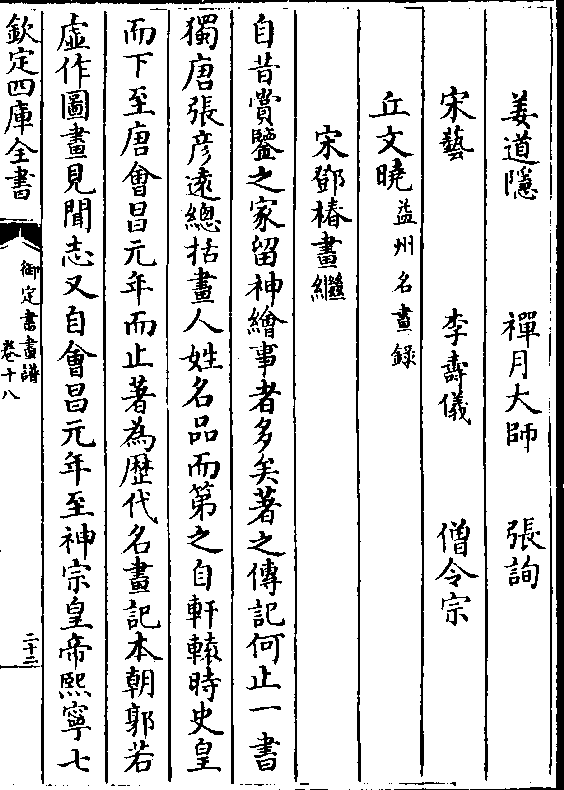 姜道隱　禪月大師　張詢
宋藝　李壽儀　僧令宗
丘文曉益州名畫錄
宋鄧椿畫繼
自昔賞鑒之家留神繪事者多矣著之傳記何止一書
獨唐張彦遠總括畫人姓名品而第之自軒轅時史皇
而下至唐會昌元年而止著為歴代名畫記本朝郭若
虛作圖畫見聞志又自會昌元年至神宗皇帝熙寧七
欽定四庫全書
御定書畫譜
卷十八
二十二